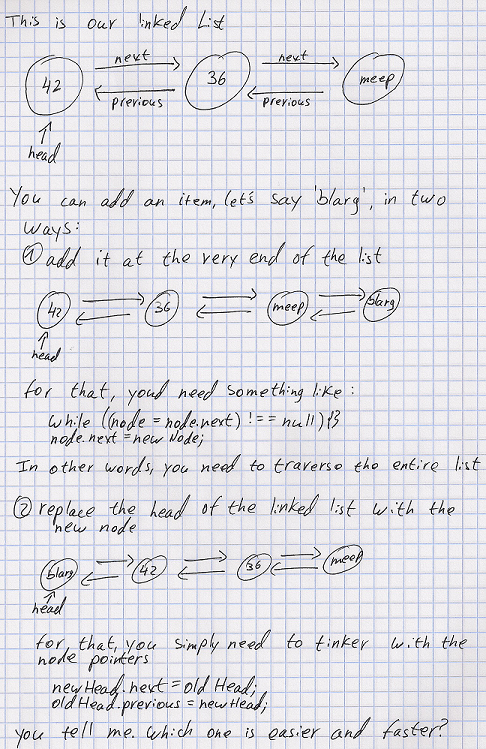 This is our linked List
next next
42 36 meep
previous previous
head
You can add an item, let's say 'blarg', in two
ways:
① add it at the very end of the list
42 36 meep blarg
head
for that, you'd need something like:
while ((node = node.next) !== null){}
node.next = new Node;
In other words, you need to traverse the entire list
② replace the head of the linked list with the
new node
blarg 42 36 meep
head
for that, you simply need to tinker with the
node pointers
newHead.next = old Head;
oldHead.previous = newHead;
You tell me. which one is easier and faster?